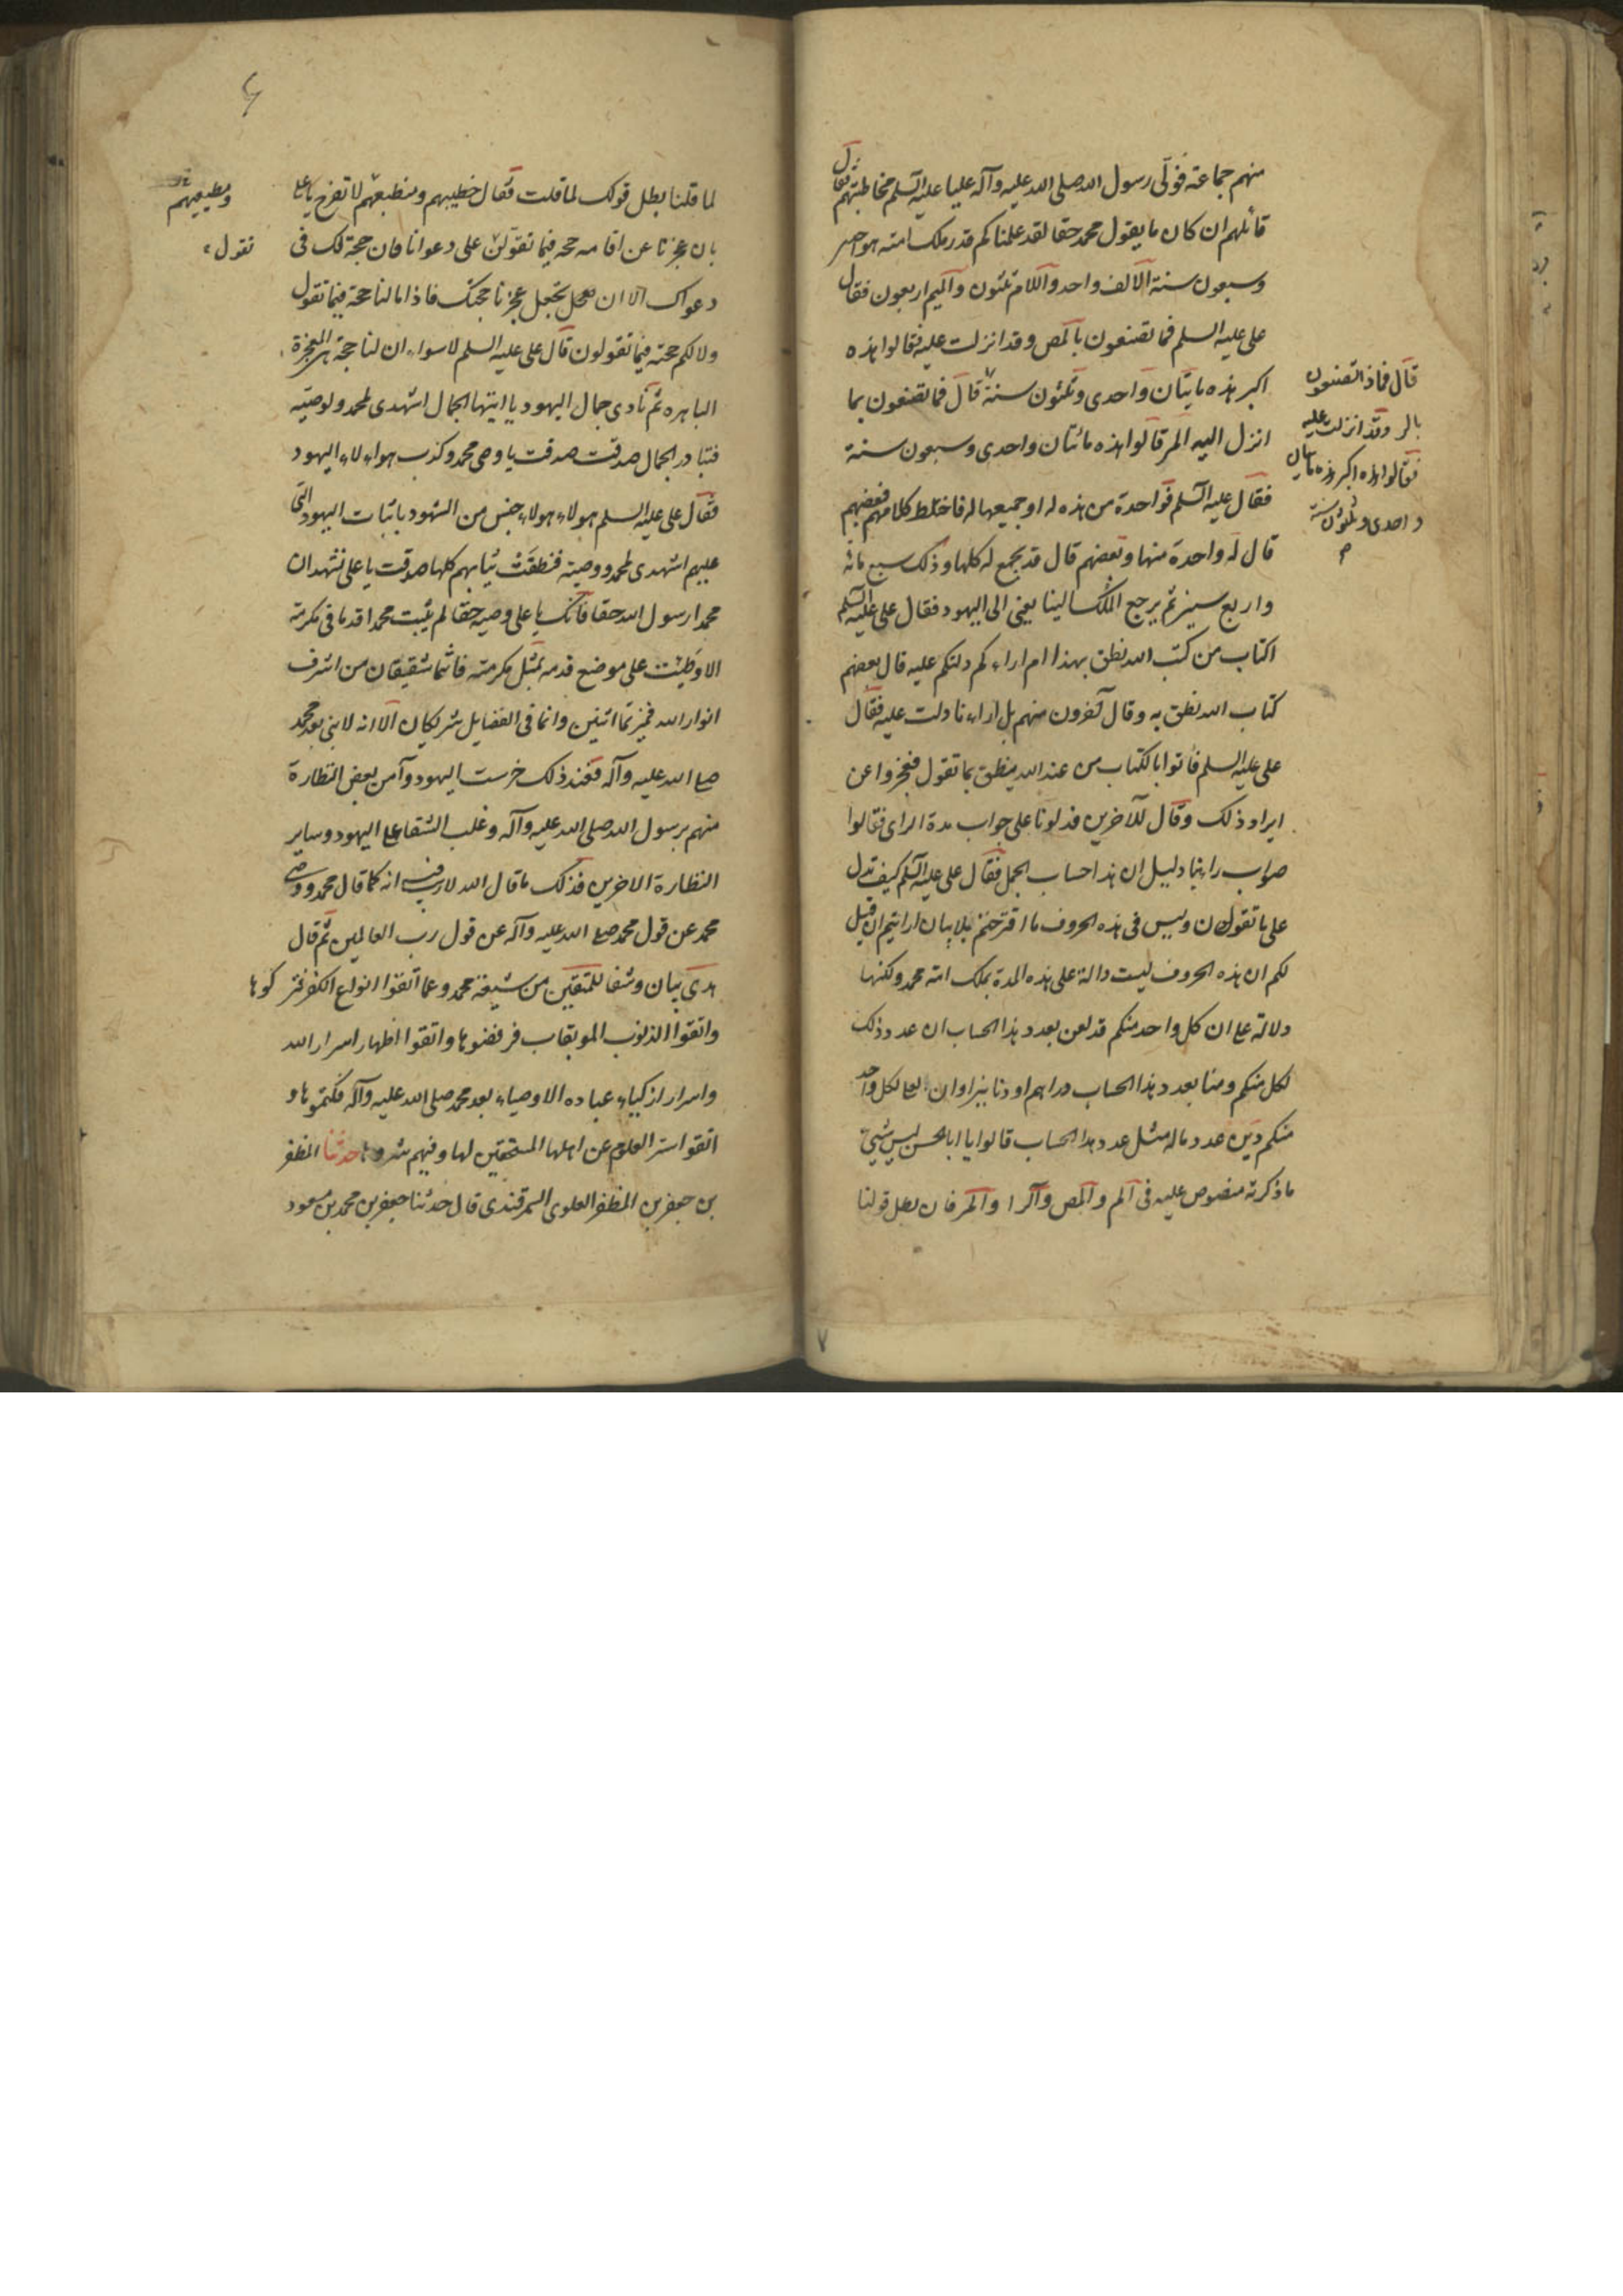 منهم جماعة فولّى رسول الله صلى الله عليه وآله عليا عليه السلم مخاطبتهم فقال
قائلهم ان كان ما يقول محمد حقا لقد علمناكم قدر ملك امته هو احدى
وسبعون سنة الالف واحد واللام ثلثون والميم اربعون فقال
على عليه السلم فما تصنعون بالمص وقد انزلت عليه فقالوا هذه
اكبر هذه مايتان واحدى وثلثون سنة قال فما تصنعون بما
انزل اليه المر قالوا هذه مائتان واحدى وسبعون سنة
فقال عليه السلم فواحدة من هذه له او جميعها له فاختلط كلامهم فبعضهم
قال له واحدة منها وبعضهم قال قد يجمع له كلها وذلك سبع مائة
واربع سنين ثم يرجع الملك الينا يعنى الى اليهود فقال على عليه السلم
اكتاب من كتب الله نطق بهذا ام اراءكم دلتكم عليه قال بعضهم
كتاب الله نطق به وقال آخرون منهم بل اراءنا دلت عليه فقال
على عليه السلم فاتوا بالكتاب من عند الله ينطق بما تقول فعجزوا عن
ايراد ذلك وقال للآخرين فدلونا على جواب مدة الراى فقالوا
صواب راينا دليل ان هذا حساب الجمل فقال على عليه السلم كيف تدل
على ما تقولون وليس فى هذه الحروف ما اقترحتم بلا بيان ارايتم ان قيل
لكم ان هذه الحروف ليست دالة على هذه المدة بملك امة محمد ولكنها
دلالة على ان كل واحد منكم قد لعن بعدد هذا الحساب ان عدد ذلك
لكل منكم ومنا بعدد هذا الحساب دراهم او دنانير او ان لعلى لكل واحد
منكم دين عدد ماله مثل عدد هذا الحساب قالوا يا ابا الحسن ليس شىء
ما ذكرته منصوص عليه فى الم والمص والرا والمر فان بطل قولنا
قال فماذا تصنعون
بالر وقد انزلت عليه
فقالوا هذه اكبر هذه مايتان
واحدى وثلثون سنة
م
٧
لما قلنا بطل قولك لما قلت فقال خطيبهم ومنطيقهم لا تفرح يا على
بان عجزنا عن اقامة حجة فيما تقولن على دعوانا فان حجة لك فى
دعواك الا ان تجعل عجزنا حجتك فاذا ما لنا حجة فيما تقول
ولا لكم حجة فيما تقولون قال على عليه السلم لا سواء ان لنا حجة هى المعجزة
الباهره ثم نادى جمال اليهود يا ايتها الجمال اشهدى لمحمد ولوصيه
فتبادر الجمال صدقت صدقت يا وصى محمد وكذب هولاء اليهود
فقال على عليه السلم هولاء هولاء جنس من الشهود يا ثياب اليهود التى
عليهم اشهدى لمحمد ووصيه فنطقت ثيابهم كلها صدقت يا على نشهد ان
محمدا رسول الله حقا فانك يا على وصيه حقا لم يثبت محمدا قدما فى مكرمة
الا وطئت على موضع قدمه بمثل مكرمته فانتما شقيقان من اشرف
انوار الله فميزتما اثنين وانتما فى الفضايل شريكان الا انه لا نبى بعد محمد
صلى الله عليه وآله فعند ذلك خرست اليهود وآمن بعض النظارة
منهم برسول الله صلى الله عليه وآله وغلب الشقا على اليهود وساير
النظارة الاخرين فذلك ما قال الله لا ريب فيه انه كما قال محمد ووصى
محمد عن قول محمد صلى الله عليه وآله عن قول رب العالمين ثم قال
هدى بيان وشفا للمتقين من شيعة محمد وعلى اتقوا انواع الكفر فتركوها
واتقوا الذنوب الموبقات فرفضوها واتقوا اظهار اسرار الله
واسرار ازكياء عباده الاوصياء بعد محمد صلى الله عليه وآله فكتموها و
اتقوا ستر العلوم عن اهلها المستحقين لها وفيهم نشروها حدثنا المظفر
بن جعفر بن المظفر العلوى السمرقندى قال حدثنا جعفر بن محمد بن مسعود
ومنطيقهم
تقول